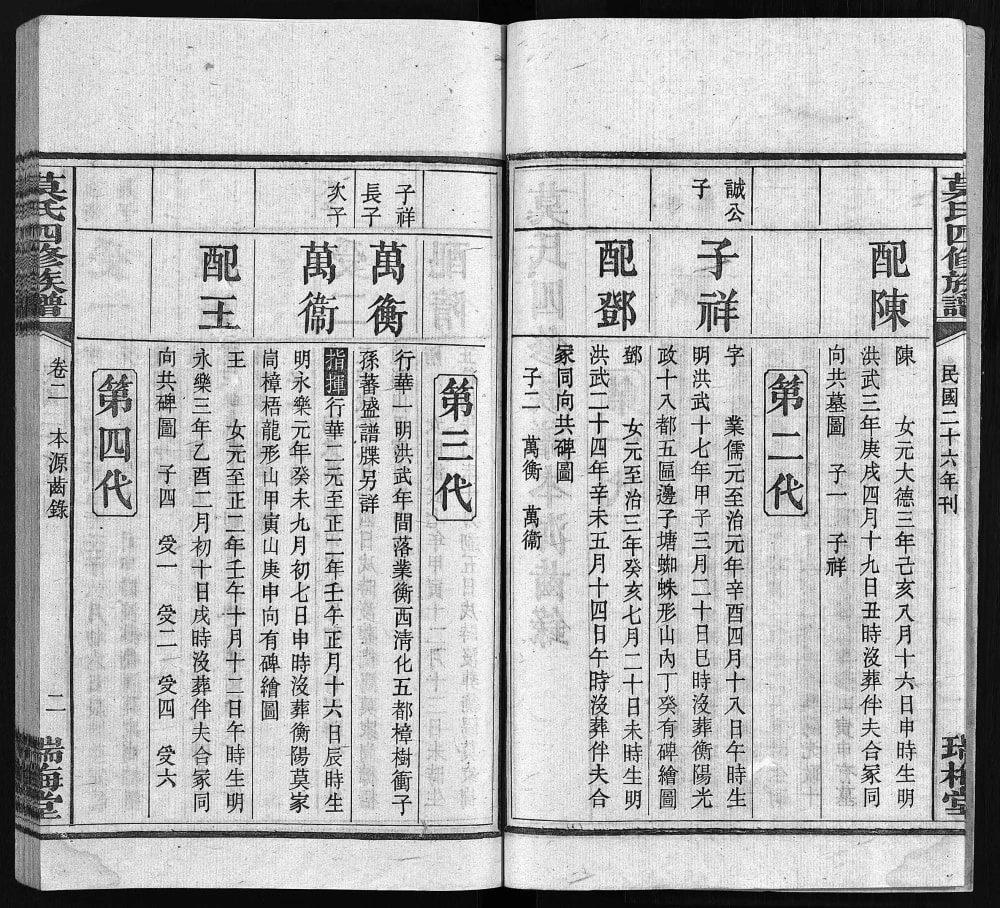 莫氏四修族譜
民國二十六年刊
瑞梅堂
配陳
陳 女元大德三年己亥八月十六日申時生明
洪武三年庚戌四月十九日丑時沒葬伴夫合冢同
向共墓圖 子一 子祥
第二代
誠公
子
子祥
字 業儒元至治元年辛酉四月十八日午時生
明洪武十七年甲子三月二十日巳時沒葬衡陽光
政十八都五區邊子塘蜘蛛形山內丁癸有碑繪圖
配鄧
鄧 女元至治三年癸亥七月二十日未時生明
洪武二十四年辛未五月十四日午時沒葬伴夫合
冢同向共碑圖
子二 萬衡 萬衞
第三代
子祥
長子
萬衡
行華一明洪武年間落業衡西清化五都樟樹衝子
孫蕃盛譜牒另詳
次子
萬衞
指揮行華二元至正二年壬午正月十六日辰時生
明永樂元年癸未九月初七日申時沒葬衡陽莫家
崗樟梧龍形山甲寅山庚申向有碑繪圖
配王
王 女元至正二年壬午十月十二日午時生明
永樂三年乙酉二月初十日戌時沒葬伴夫合冢同
向共碑圖 子四 受一 受二 受四 受六
第四代
莫氏四修族譜
卷二 本源齒錄
二
瑞梅堂